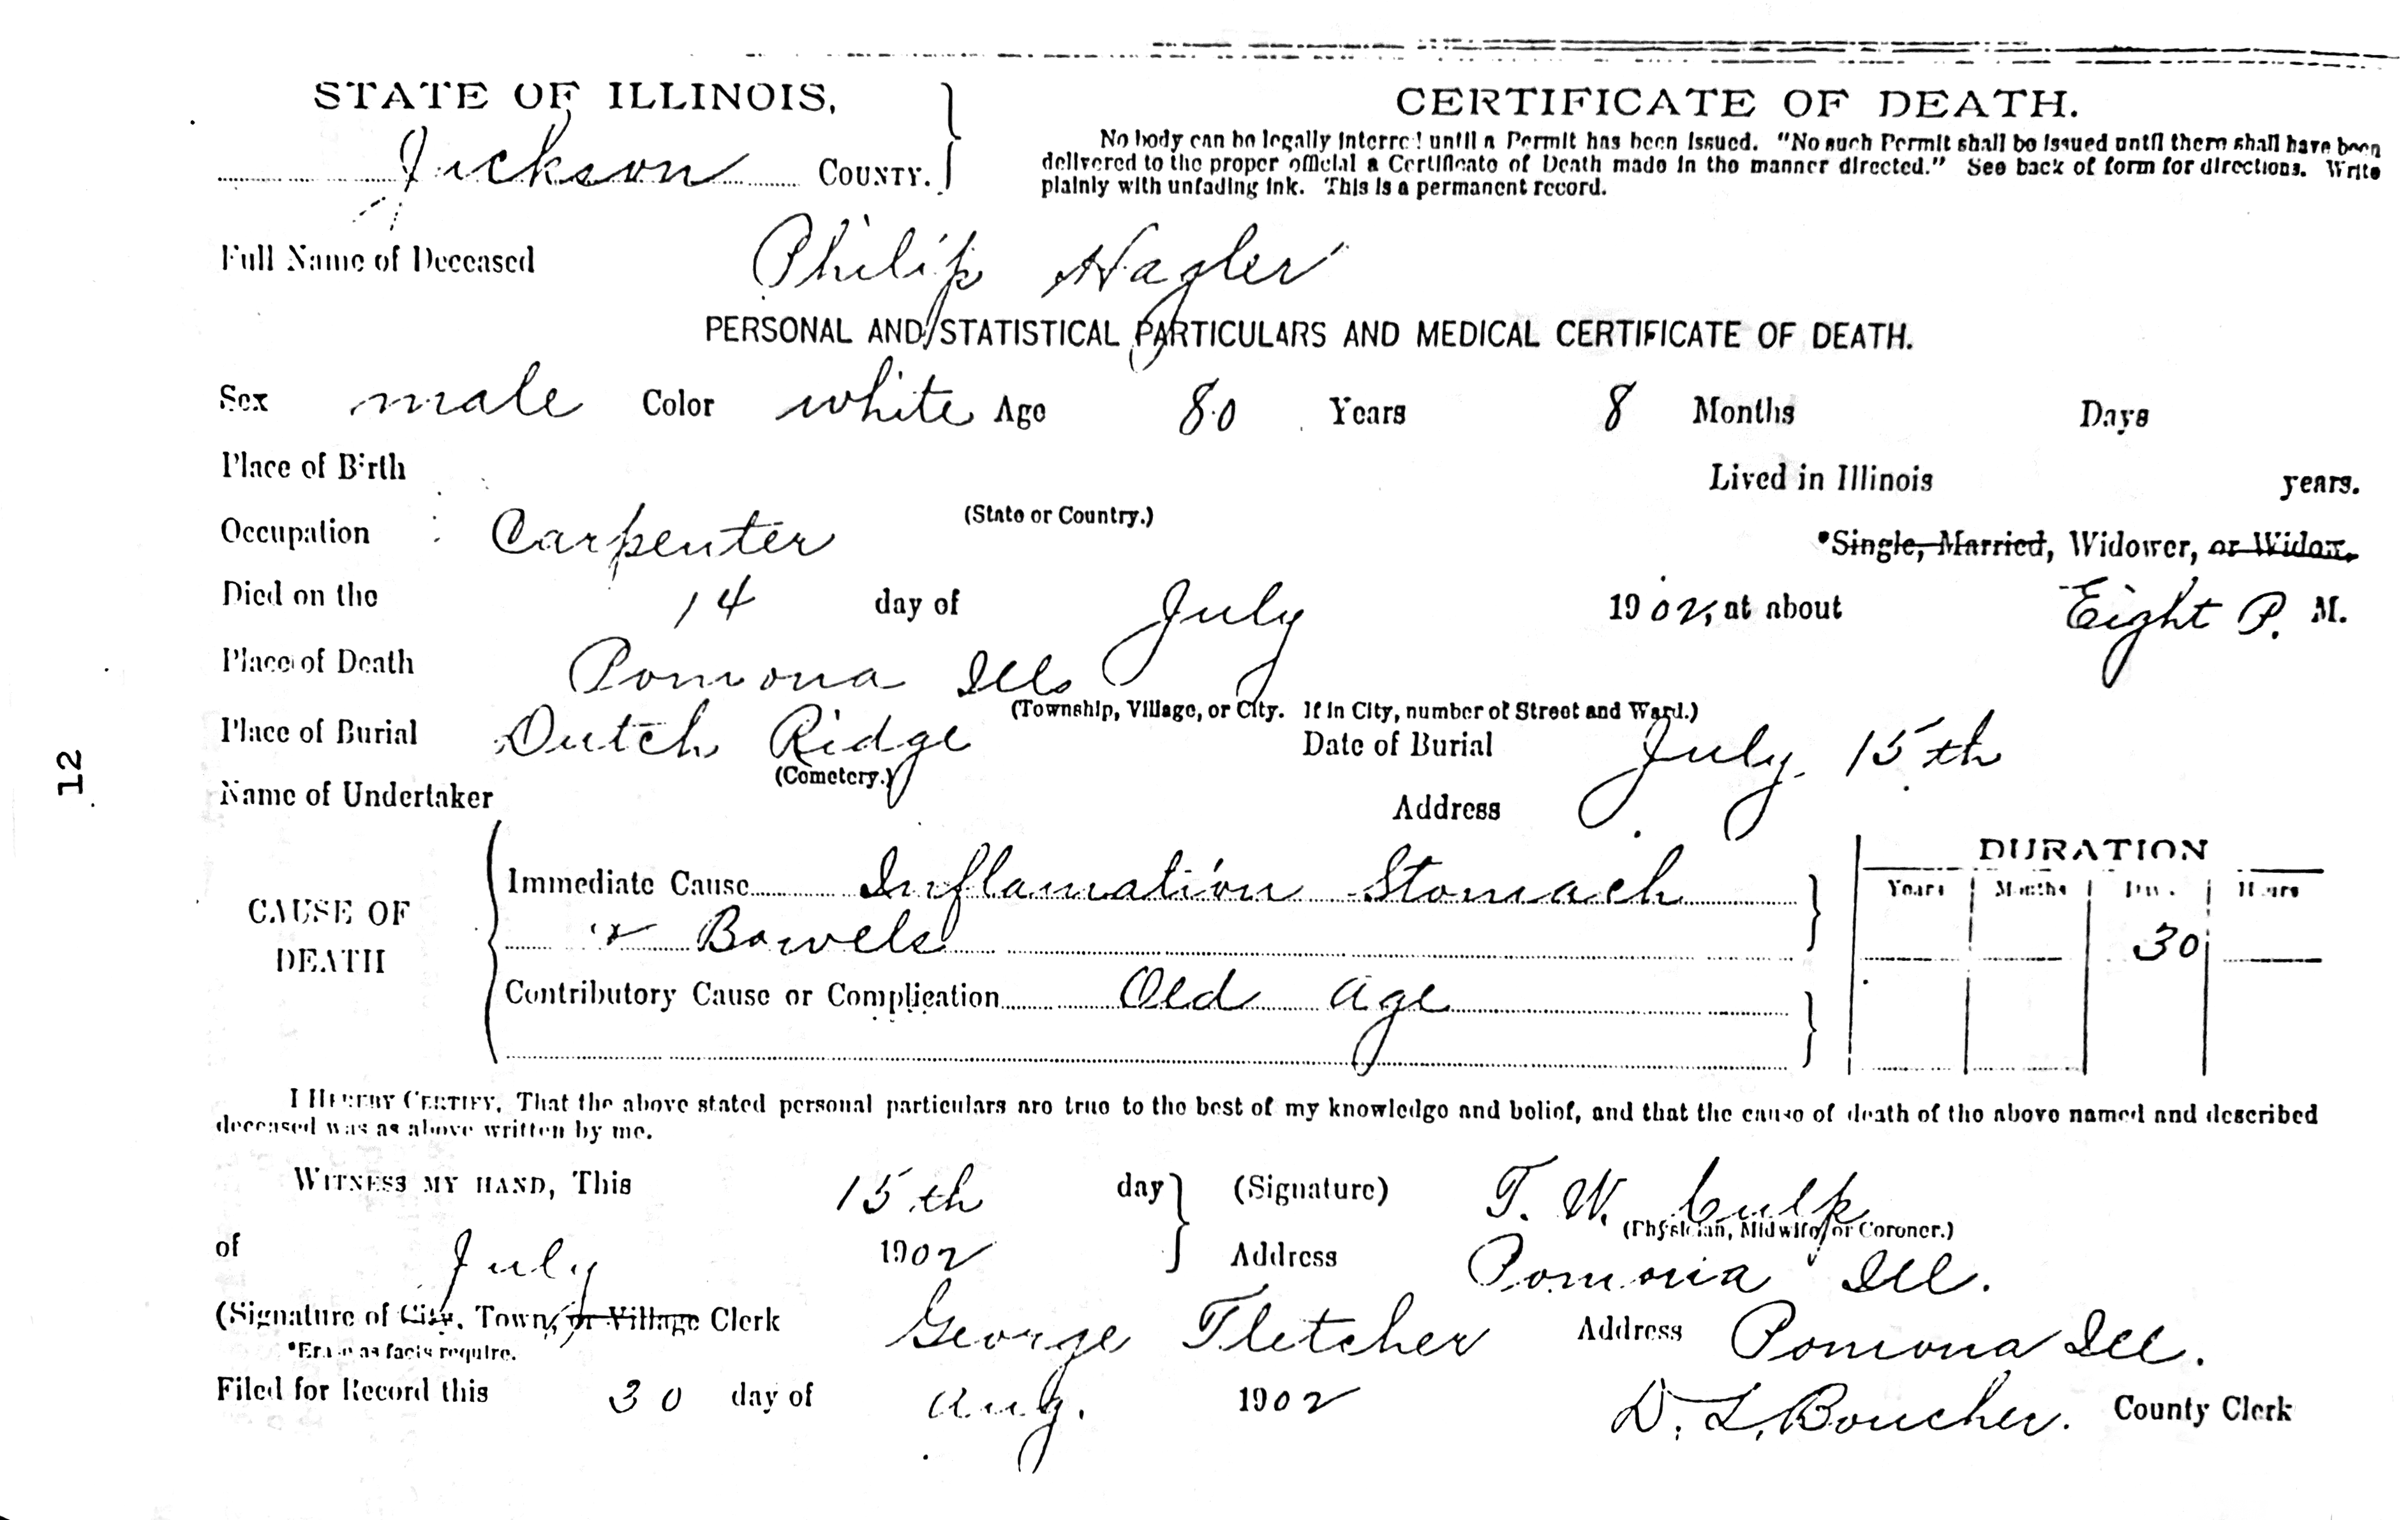 STATE OF ILLINOIS,
Jackson COUNTY.
CERTIFICATE OF DEATH.
No body can be legally interred until a Permit has been issued. "No such Permit shall be issued until them shall have been
delivered to the proper official a Certificate of Death made in the manner directed." See back of form for directions. Write
plainly with unfading ink. This is a permanent record.
Full Name of Deceased Philip Hagler
PERSONAL AND STATISTICAL PARTICULARS AND MEDICAL CERTIFICATE OF DEATH.
Sex male Color white Age 80 Years 8 Months Days
Place of Birth Lived in Illinois years.
(State or Country.)
Occupation Carpenter *Single, Married, Widower, or Widow.
Died on the 14 day of July 1902, at about Eight P. M.
Place of Death Pomona Ills
(Township, Village, or City. If in City, number of Street and Ward.)
Place of Burial Dutch Ridge Date of Burial July 15th
(Cemetery.)
Name of Undertaker Address
12
CAUSE OF DEATH
Immediate Cause Inflamation Stomach
& Bowels
Contributory Cause or Complication Old age
DURATION
Years Months Days Hours
30
I HEREBY CERTIFY, That the above stated personal particulars are true to the best of my knowledge and belief, and that the cause of death of the above named and described
deceased was as above written by me.
WITNESS MY HAND, This 15th day (Signature) T. W. Culp
(Physician, Midwife, or Coroner.)
of July 1902 Address Pomona Ill.
(Signature of City, Town, or Village Clerk George Fletcher Address Pomona Ill.
*Erase as facts require.
Filed for Record this 30 day of Aug. 1902 D. L. Boucher. County Clerk